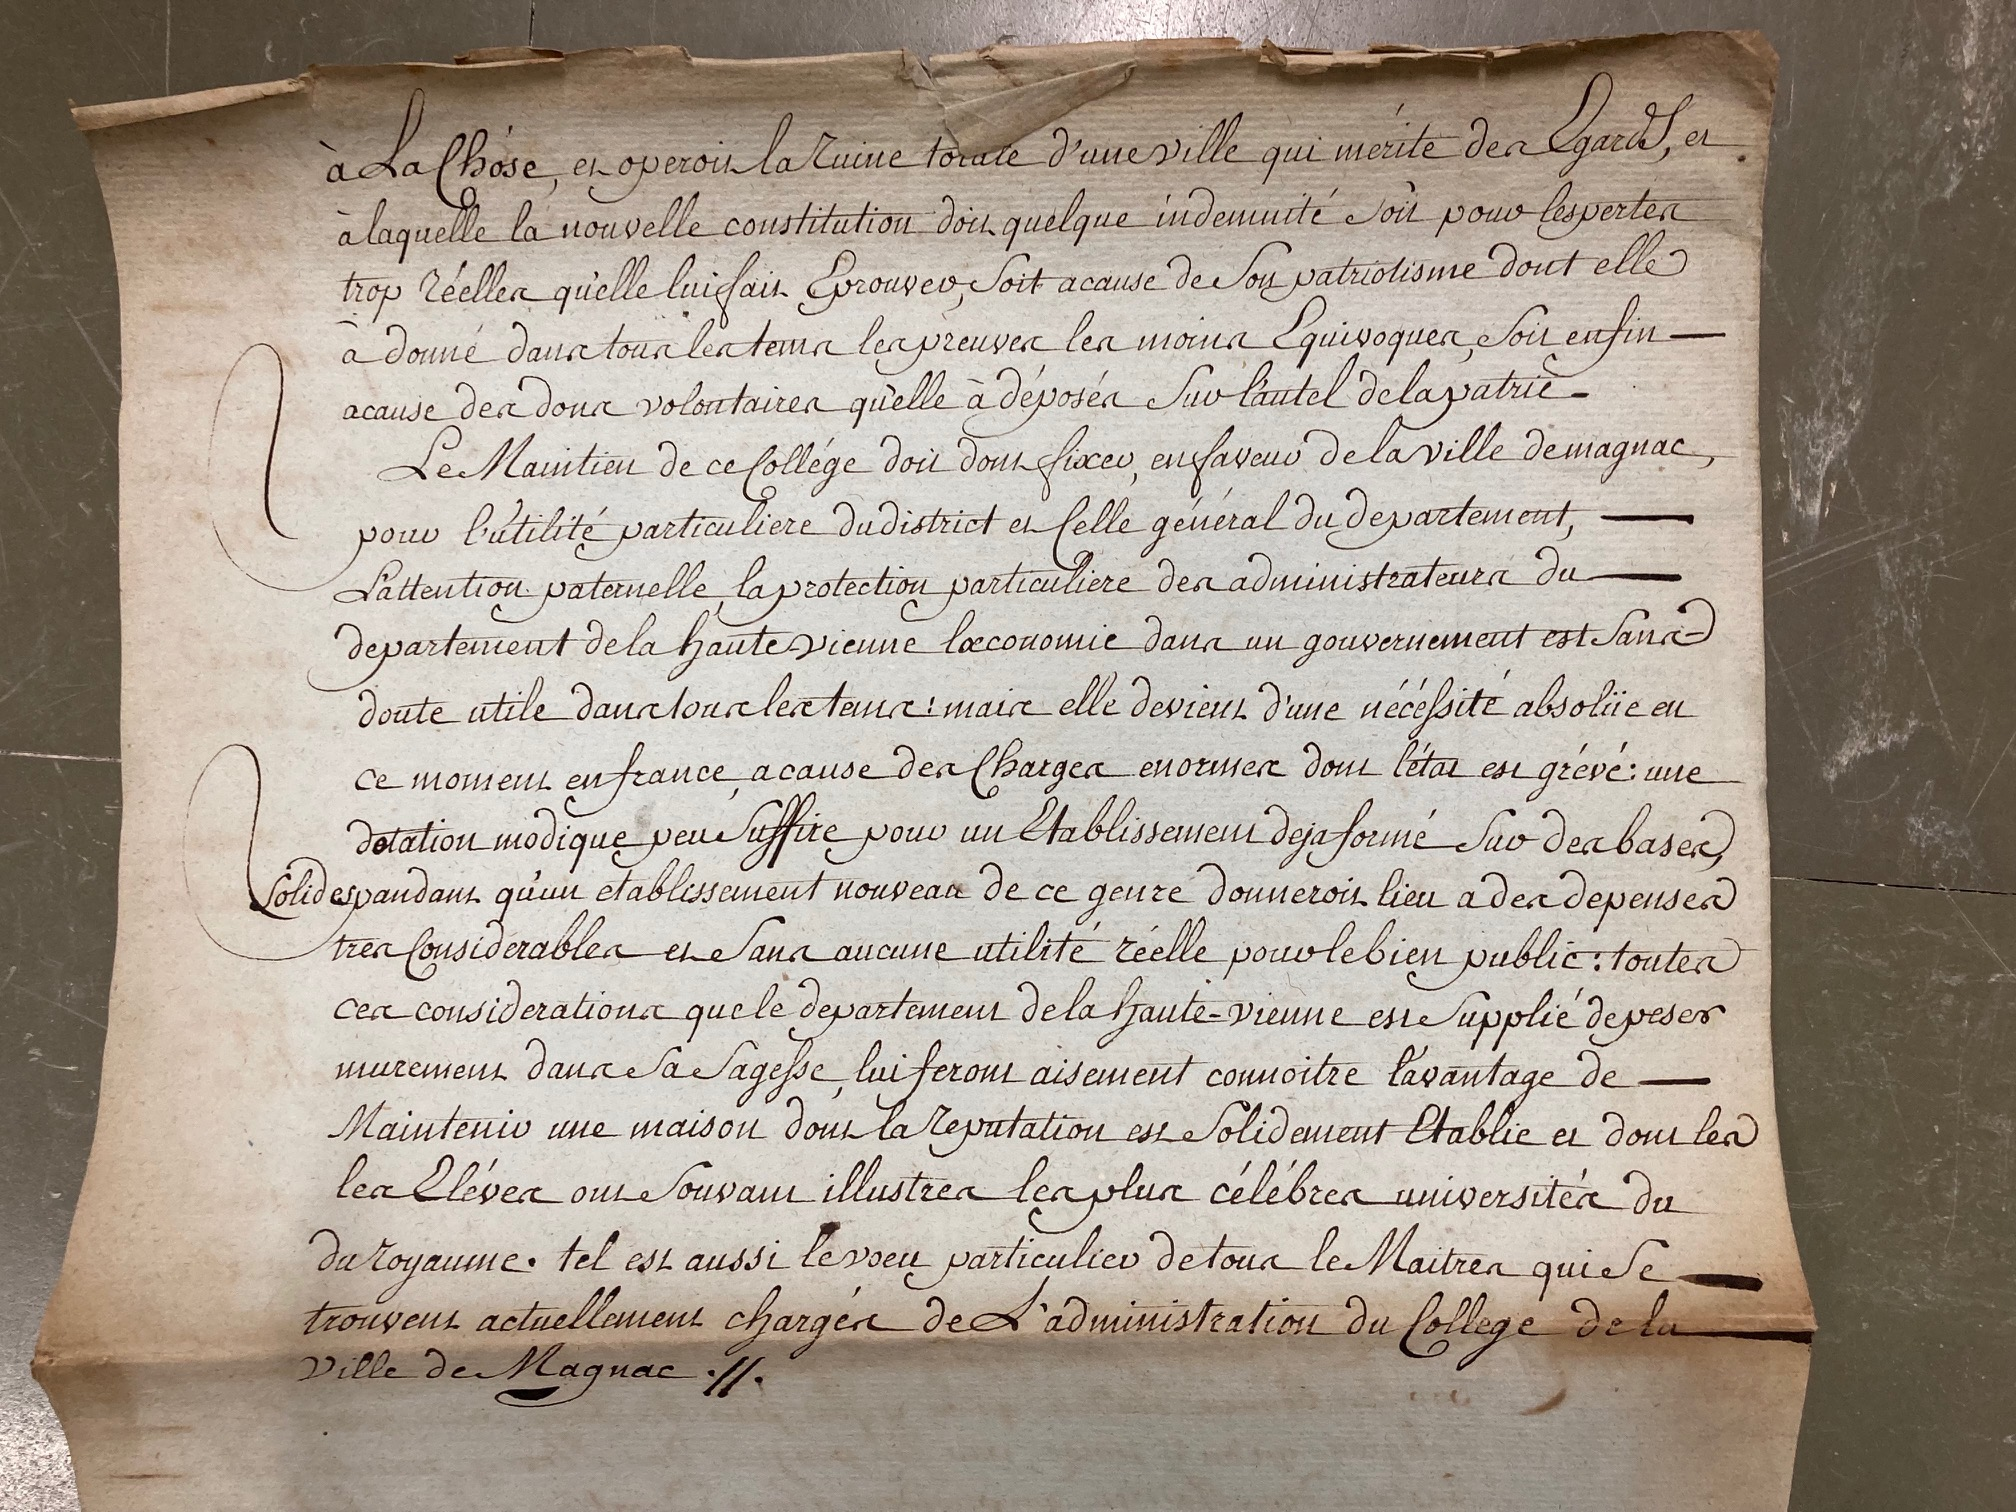 à La Chóse, et operoit la ruine totale d'une ville qui mérite des Egards, et
à laquelle la nouvelle constitution doit quelque indemnité soit pour les pertes
trop réelles qu'elle lui fait Eprouver, soit acause de son patriotisme dont elle
à donné dans tous les tems les preuves les moins Equivoques, soit enfin —
acause des dons volontaires qu'elle à déposés sur l'autel de la patrie -
Le Maintien de ce Collége doit donc fixer, en faveur de la ville de magnac,
pour l'utilité particuliere du district et Celle général du departement, —
L'attention paternelle, la protection particuliere des administrateurs du —
departement de la haute-vienne l'œconomie dans un gouvernement est sans
doute utile dans tous les tems: mais elle devient d'une nécéssité absolüe en
ce moment en france, acause des Charges enormes dont l'état est grévé: une
dotation modique peut suffire pour un Etablissement deja formé sur des bases,
solides pandant qu'un etablissement nouveau de ce genre donneroit lieu a des depenses
tres Considerables et sans aucune utilité réelle pour le bien public: toutes
ces considerations que le departement de la haute-vienne est supplié de peser
murement dans sa sagesse, lui feront aisement connoitre l'avantage de —
Maintenir une maison dont la reputation est solidement Etablie et dont les
les Eléves ont souvant illustres les plus célébres universités du
du royaume. tel est aussi le vœu particulier de tous le Maitres qui se —
trouvent actuellement chargés de L'administration du College de la —
ville de Magnac .//.